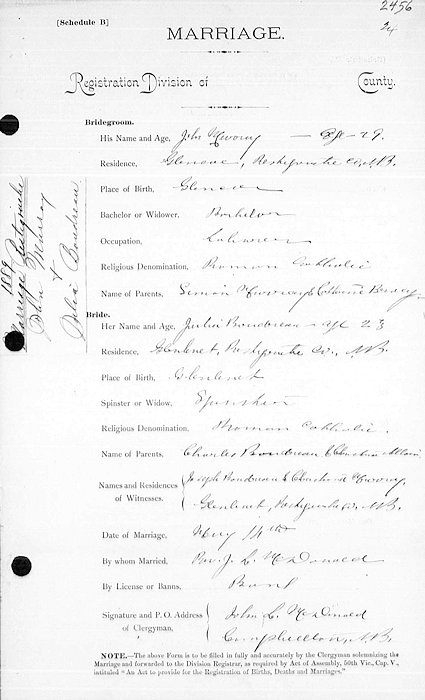 2456
24
[Schedule B]
MARRIAGE.
Registration Division of County.
Bridegroom.
His Name and Age, John — age 29
Residence, Glencoe, Restigouche Co., N.B.
Place of Birth, Glencoe
Bachelor or Widower, Bachelor
Occupation, Labourer
Religious Denomination, Roman Catholic
Name of Parents, Simon &
Bride.
Her Name and Age, Julia Boudreau — age 23
Residence, Restigouche Co., N.B.
Place of Birth,
Spinster or Widow, Spinster
Religious Denomination, Roman Catholic
Name of Parents, Charles Boudreau &
Names and Residences of Witnesses. Joseph Boudreau &
Restigouche Co. N.B.
Date of Marriage, 14th
By whom Married, Rev. J. L. McDonald
By License or Banns, Banns
Signature and P. O. Address of Clergyman, John L. McDonald
Campbellton, N.B.
NOTE.—The above Form is to be filled in fully and accurately by the Clergyman solemnizing the
Marriage and forwarded to the Division Registrar, as required by Act of Assembly, 50th Vic., Cap. V.,
intituled "An Act to provide for the Registration of Births, Deaths and Marriages."
1889
Marriage Restigouche
John Murray
&
Delia Boudreau